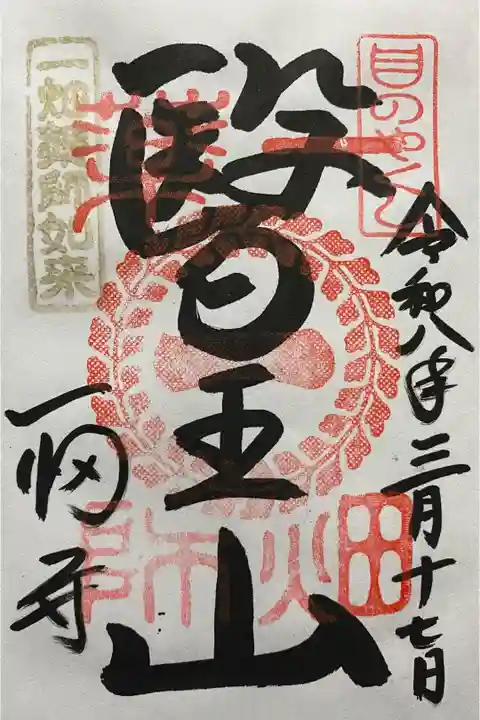 目のやくし
令和八年三月十七日
醫王山
一畑
藥師
一畑藥師如来
一畑寺